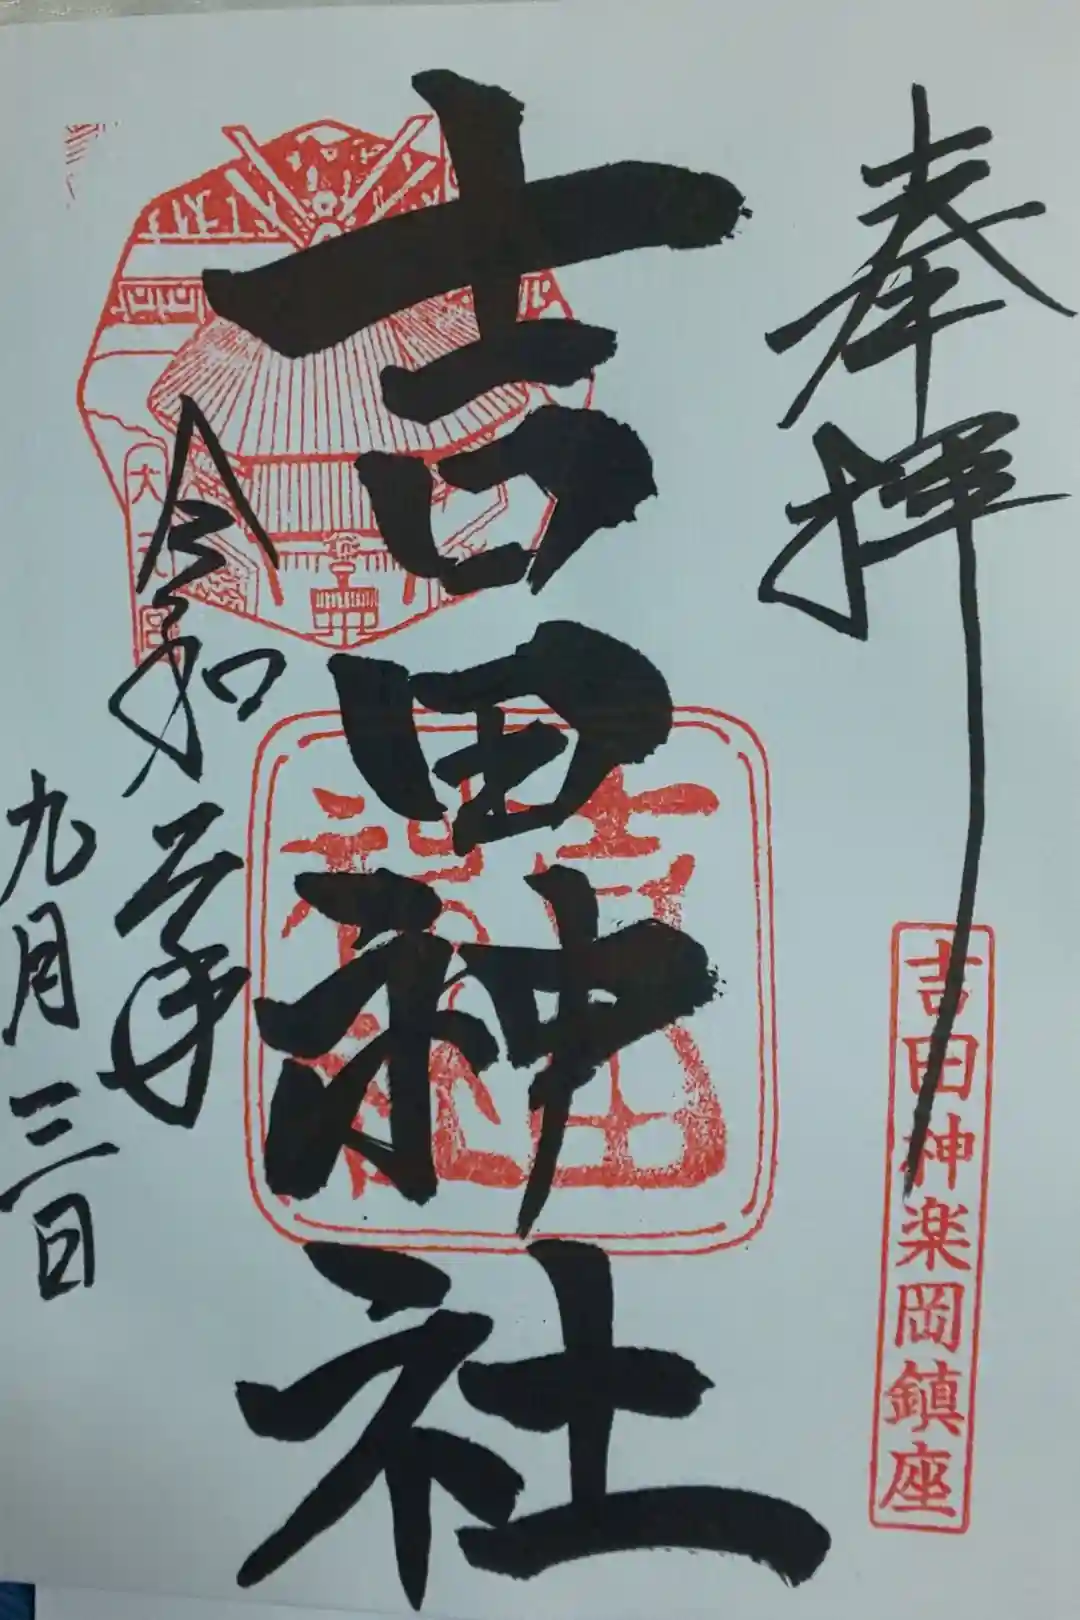 奉拝
吉田神楽岡鎮座
吉田神社
吉田神社
令和二年
九月三日
大元宮